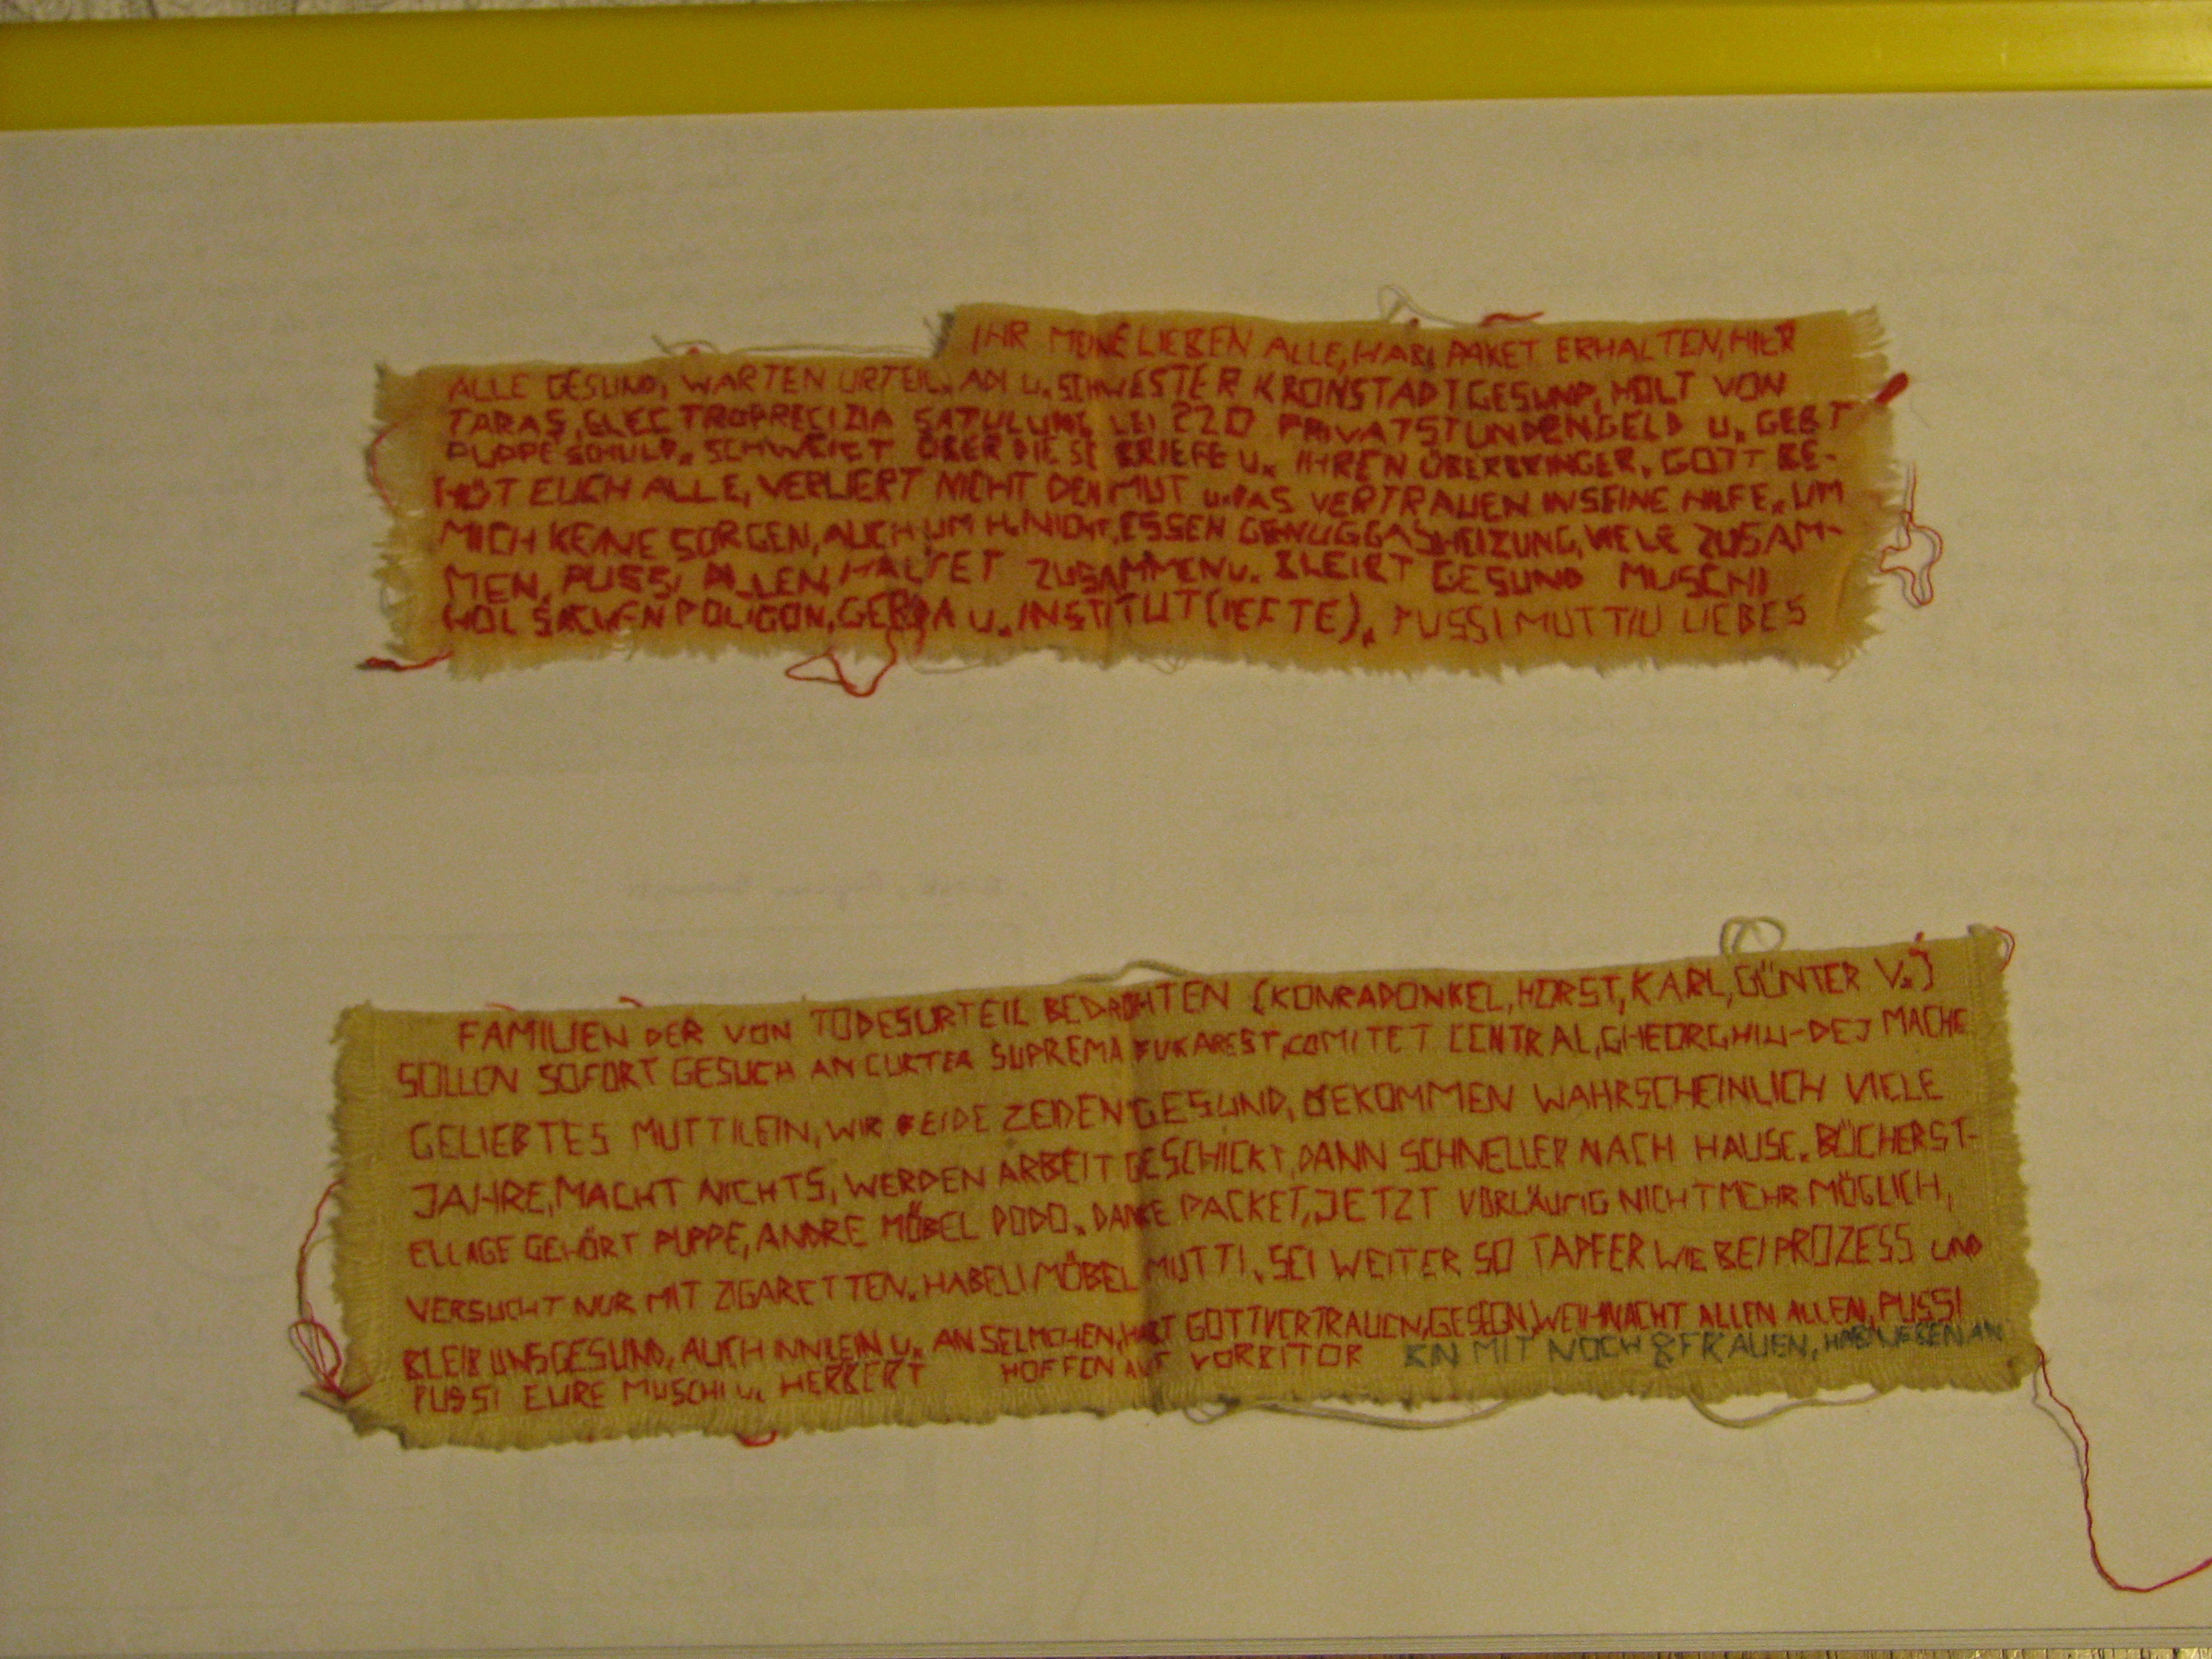 IHR MEINE LIEBEN ALLE, HABE PAKET ERHALTEN, HIER
ALLE GESUND, WARTEN URTEIL. ADI u. SCHWESTER KRONSTADT GESUND, HOLT VON
TARAS, ELECTROPRECIZIA SATULUNG LEI 220 PRIVATSTUNDENGELD U. GEBT
PUPPE SCHULD. SCHWEIGT ÜBER DIESE BRIEFE U. IHREN ÜBERBRINGER. GOTT BE-
HÜT EUCH ALLE, VERLIERT NICHT DEN MUT u. DAS VERTRAUEN IN SEINE HILFE. UM
MICH KEINE SORGEN, AUCH UM H. NICHT, ESSEN GENUG GASHEIZUNG, VIELE ZUSAM-
MEN, PUSSI ALLEN, HALTET ZUSAMMEN u. BLEIBT GESUND MUSCHI
HOL SACHEN POLIGON, GERDA U. INSTITUT (HEFTE). PUSSI MUTTI U LIEBES
FAMILIEN DER VON TODESURTEIL BEDROHTEN (KONRADONKEL, HORST, KARL, GÜNTER V.)
SOLLEN SOFORT GESUCH AN CURTEA SUPREMA BUKAREST, COMITET CENTRAL, GHEORGHIU-DEJ MACHE
GELIEBTES MUTTILEIN, WIR BEIDE ZEIDEN GESUND, BEKOMMEN WAHRSCHEINLICH VIELE
JAHRE, MACHT NICHTS, WERDEN ARBEIT GESCHICKT, DANN SCHNELLER NACH HAUSE. BÜCHERST-
ELLAGE GEHÖRT PUPPE, ANDRE MÖBEL DODO. DANKE PACKET, JETZT VORLÄUFIG NICHT MEHR MÖGLICH,
VERSUCHT NUR MIT ZIGARETTEN. MÖBEL MUTTI. SEI WEITER SO TAPFER WIE BEI PROZESS UND
BLEIB UNS GESUND, AUCH INNLEIN U. ANSELMCHEN, HABT GOTTVERTRAUEN, GESEGN, WEIHNACHT ALLEN ALLEN, PUSSI
PUSSI EURE MUSCHI u. HERBERT HOFFEN AUF VORBITOR BIN MIT NOCH 8 FRAUEN,